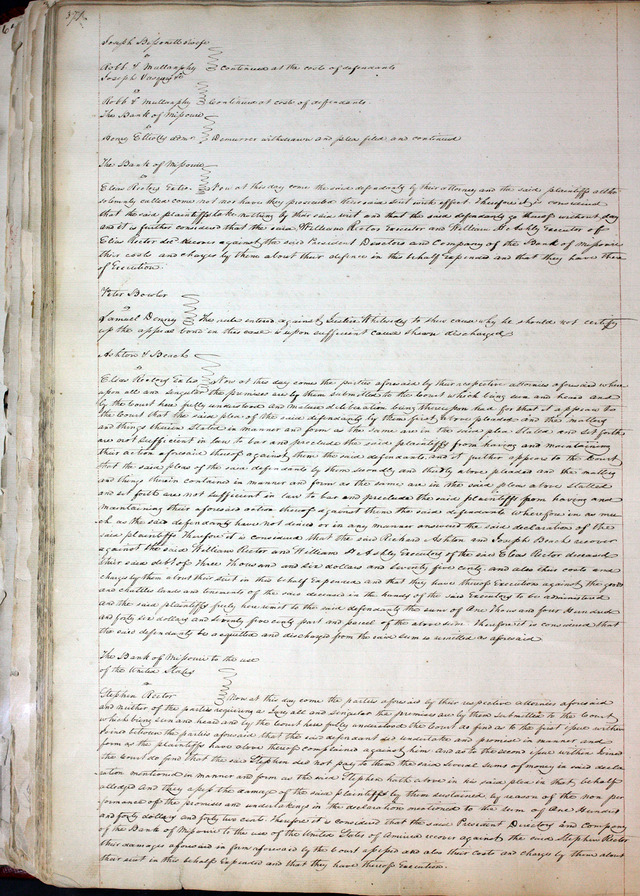 Joseph Bissonette
vs
Robb & Mullanphy Continued at the costs of defendants
Joseph Vasquez
vs
Robb & Mullanphy Continued at costs of deffendants
The Bank of Missouri
vs
Henry Elliotts Demurrer withdrawn and plea filed and continued
The Bank of Missouri
vs
Elias Rectors Exter. Now at this day come the said defendants by their attorney and the said plaintiffs altho
solemnly called come not nor have they prosecuted their said writ with effect. Therefore it is considered
that the said plaintiffs take nothing by their said writ and that the said defendants go thereof without day
and it is further considered that the said William Rector Executor and William H Ashly Executor of
Elias Rector decd. recover against the said President Directors and Company of the Bank of Missouri
their costs and charges by them about their defence in this behalf Expended and that they have thereof
Execution.
Peter Bowler
vs
Samuel Denny This rule entered against Justice Whitesides to shew cause why he should not certify
up the appeal bond in this case is upon sufficient cause shewn discharged
Ashton & Beach
vs
Elias Rectors Extor Now at this day comes the parties aforesaid by their respective attornies aforesaid where
upon all and singular the premises are by them submitted to the Court which being seen and heard and
by the Court here fully understood and mature deliberation being thereupon had for that it appears to
the Court that the said plea of the said defendants by them first above pleaded and the matters
and things therein stated manner and form as the same are in the said plea stated and set forth
are not sufficient in law to bar and preclude the said plaintiffs from having and maintaining
their action aforesaid thereof against them the said defendants and it further appears to the Court
that the said pleas of the said defendants by them secondly and thirdly above pleaded and the matters
and things therein contained in manner and form as the same are in the said pleas above stated
and set forth are not sufficient in law to bar and preclude the said plaintiffs from having and
maintaining their aforesaid action thereof against them the said defendants wherefore in as mu-
ch as the said defendants have not denied or in any manner answered the said declaration of the
said plaintiffs Therefore it is considered that the said Richard Ashton and Joseph Beach recover
against the said William Rector and William H Ashly Executors of the said Elias Rector deceased
their said debt of three Thousand and six dollars and seventy five cents and also their costs and
charges by them about their suit in this behalf Expended and that they have thereof Execution against the goods
and chattles lands and tenements of the said deceased in the hands of the said Executors to be administered
and the said plaintiffs freely here remit to the said defendants the sum of One Thousand four Hundred
and forty six dollars and seventy five cents part and parcel of the above sum therefore it is considered that
the said defendants be acquitted and discharged from the said sum so remitted as aforesaid
The Bank of Missouri to the use
of the United States
vs
Stephen Rector Now at this day come the parties aforesaid by their respective attornies aforesaid
and neither of the parties requiring a Jury all and singular the premises are by them submitted to the Court
which being seen and heard and by the Court here fully understood the Court do find as to the first issue within
joined between the parties aforesaid that the said defendant did undertake and promise in manner and
form as the plaintiffs have above thereof complained against him and as to the second issue within joined
the Court do find that the said Stephen did not pay to them the said several sums of money in said decla-
ration mentioned in manner and form as the said Stephen hath above in his said plea in that behalf
alledged and they assess the damage of the said plaintiffs by them sustained by reason of the non per
formance of the promises and undertakings in the declaration mentioned to the sum of One Hundred
and forty dollars and forty two cents therefore it is considered that the said President Directors and Company
of the Bank of Missouri to the use of the United States of America recover against the said Stephen Rector
their damages aforesaid in form aforesaid by the Court assessed and also their costs and charges by them about
their suit in this behalf Expended and that they have thereof Execution.